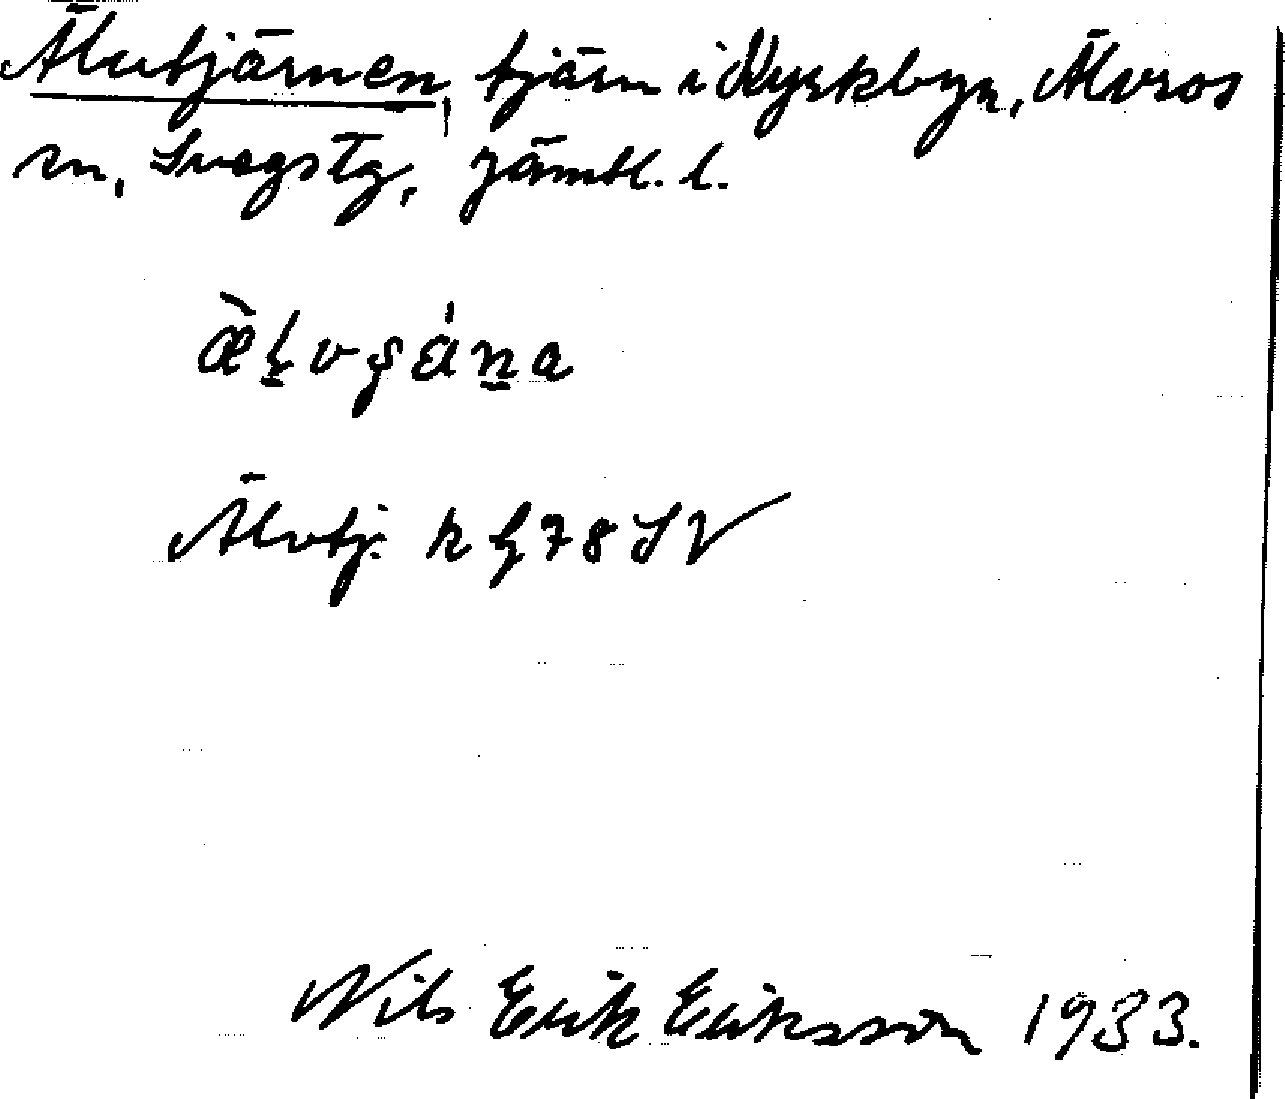 Älvtjärnen, tjärn i Kyrkbyn, Älvros
sn, Svegs tg, Jämtl. l.
Älvtj. k h 78 SV
Nils Erik Eriksson 1933.